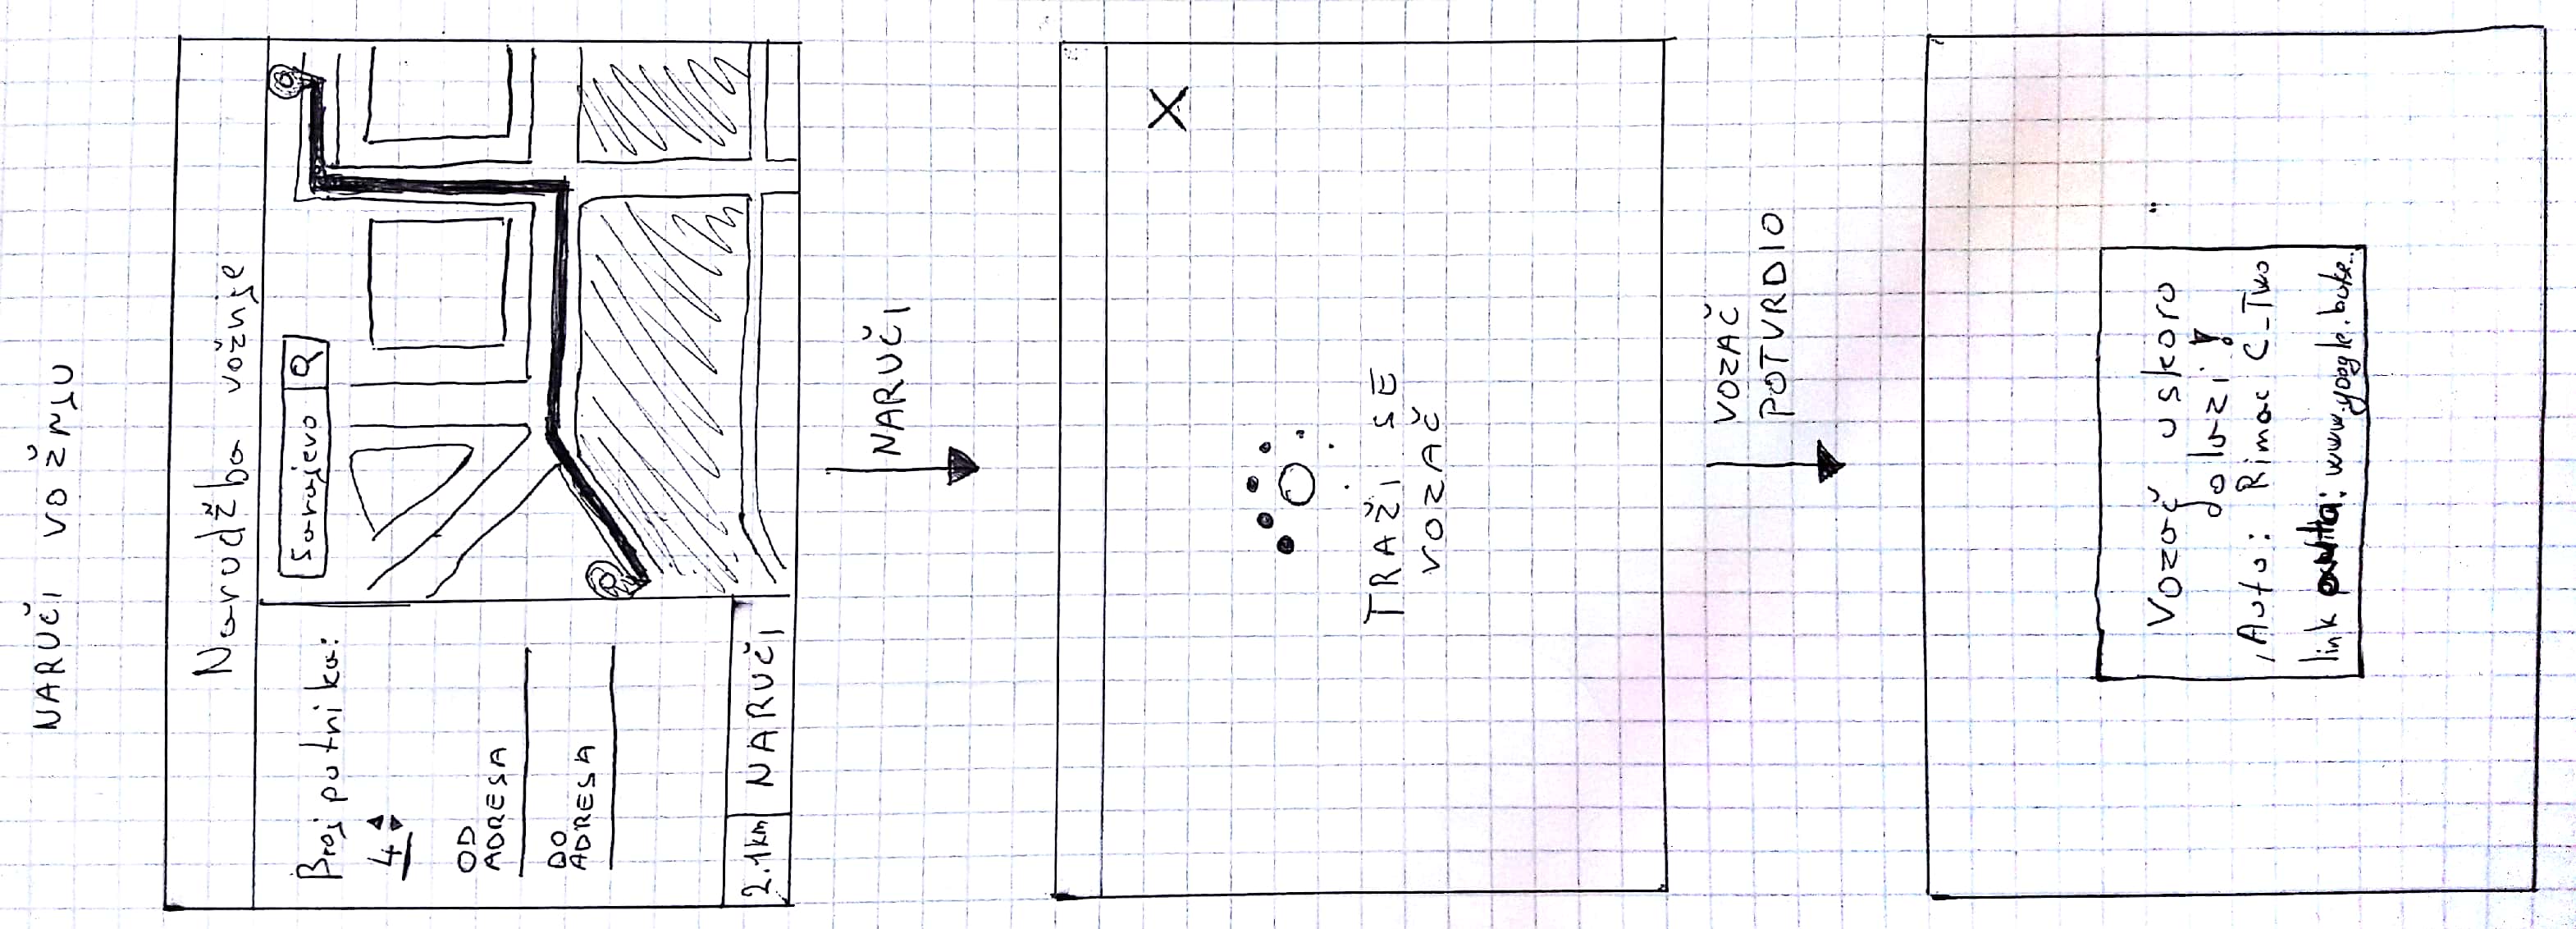 NARUČI VOŽNJU
Narudžba vožnje
Broj putnika:
4
OD
ADRESA
DO
ADRESA
2.1km
NARUČI
Sarajevo
NARUČI
X
TRAŽI SE
VOZAČ
VOZAČ
POTVRDIO
Vozač uskoro
dolazi!
Auto: Rimac C_Two
link